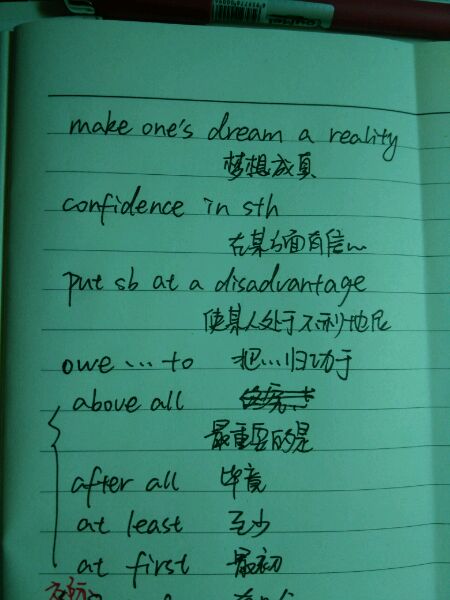 make one's dream a reality
梦想成真
confidence in sth
在某方面有信心
put sb at a disadvantage
使某人处于不利地位
owe ... to 把...归功于
above all
最重要的是
after all 毕竟
at least 至少
at first 最初